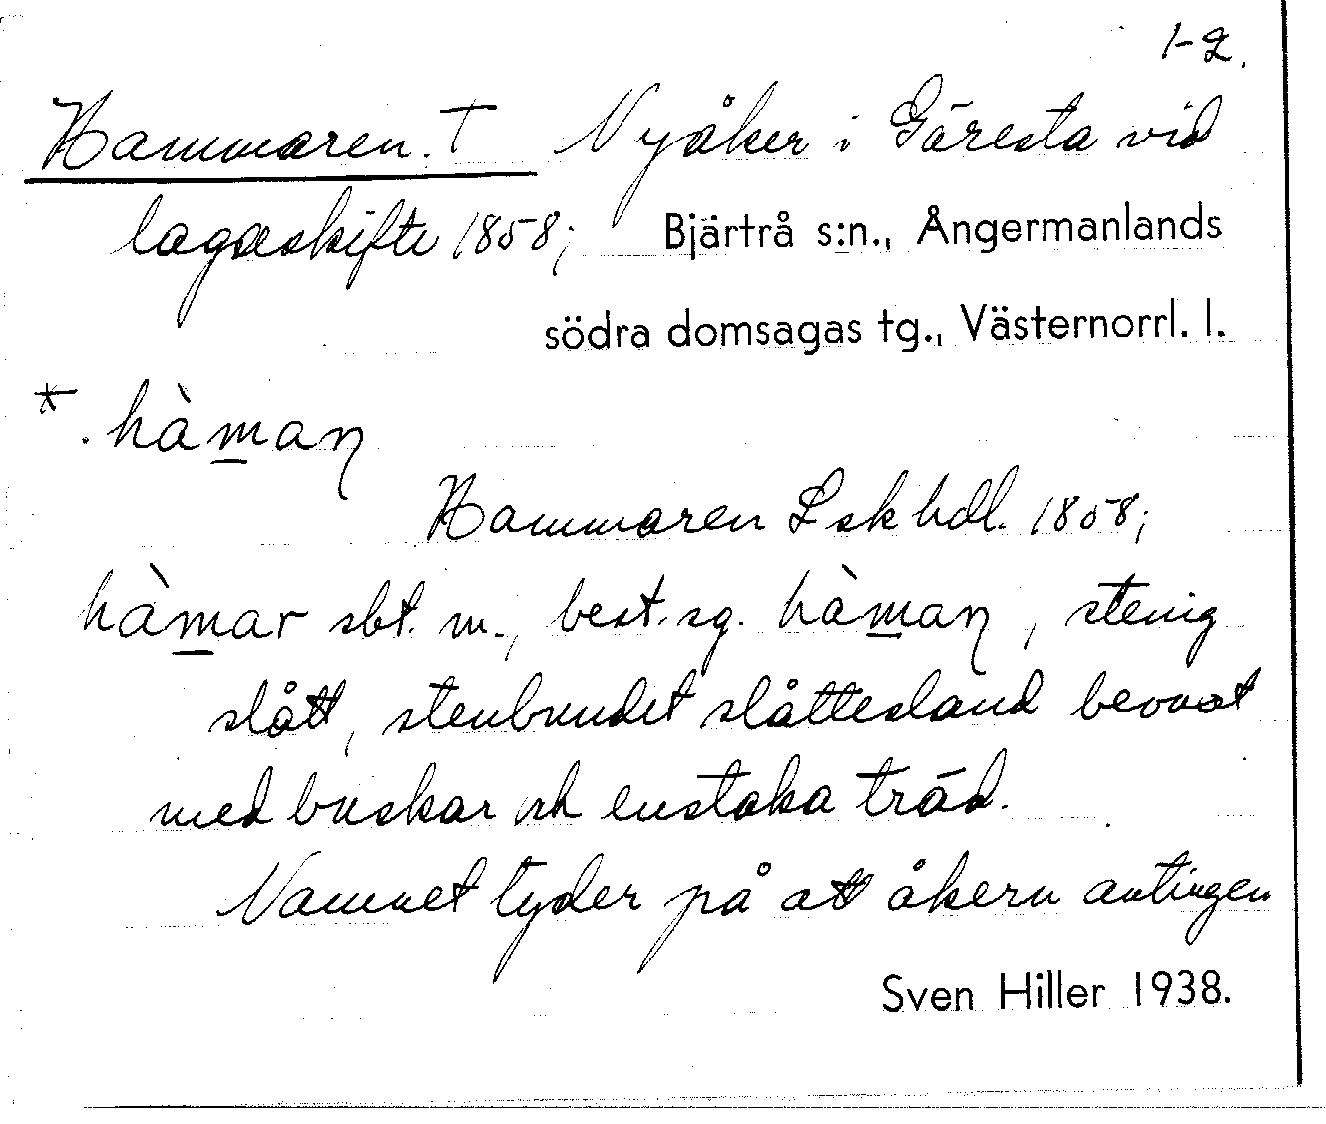 1-2.
Hammaren. † Nyåker i Gäresta vid
lagaskifte 1858; Bjärtrå s:n., Ångermanlands
södra domsagas tg., Västernorrl. l.
*. hàm̲aɳ
Hammaren Lskhdl. 1858;
hàm̲ar sbt. m., best. sg. hàm̲aɳ, stenig
slått, stenbundet slåttesland bevuxet
med buskar och enstaka träd.
Namnet tyder på att åkern antingen
Sven Hiller 1938.